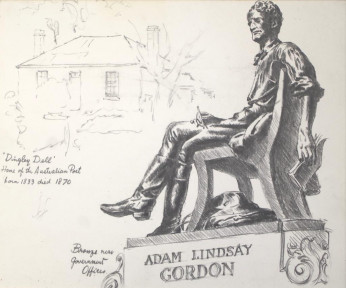 'Dingley Dell'
Home of the Australian Poet
born 1833 died 1870
Bronze near
Government
Offices
ADAM LINDSAY
GORDON